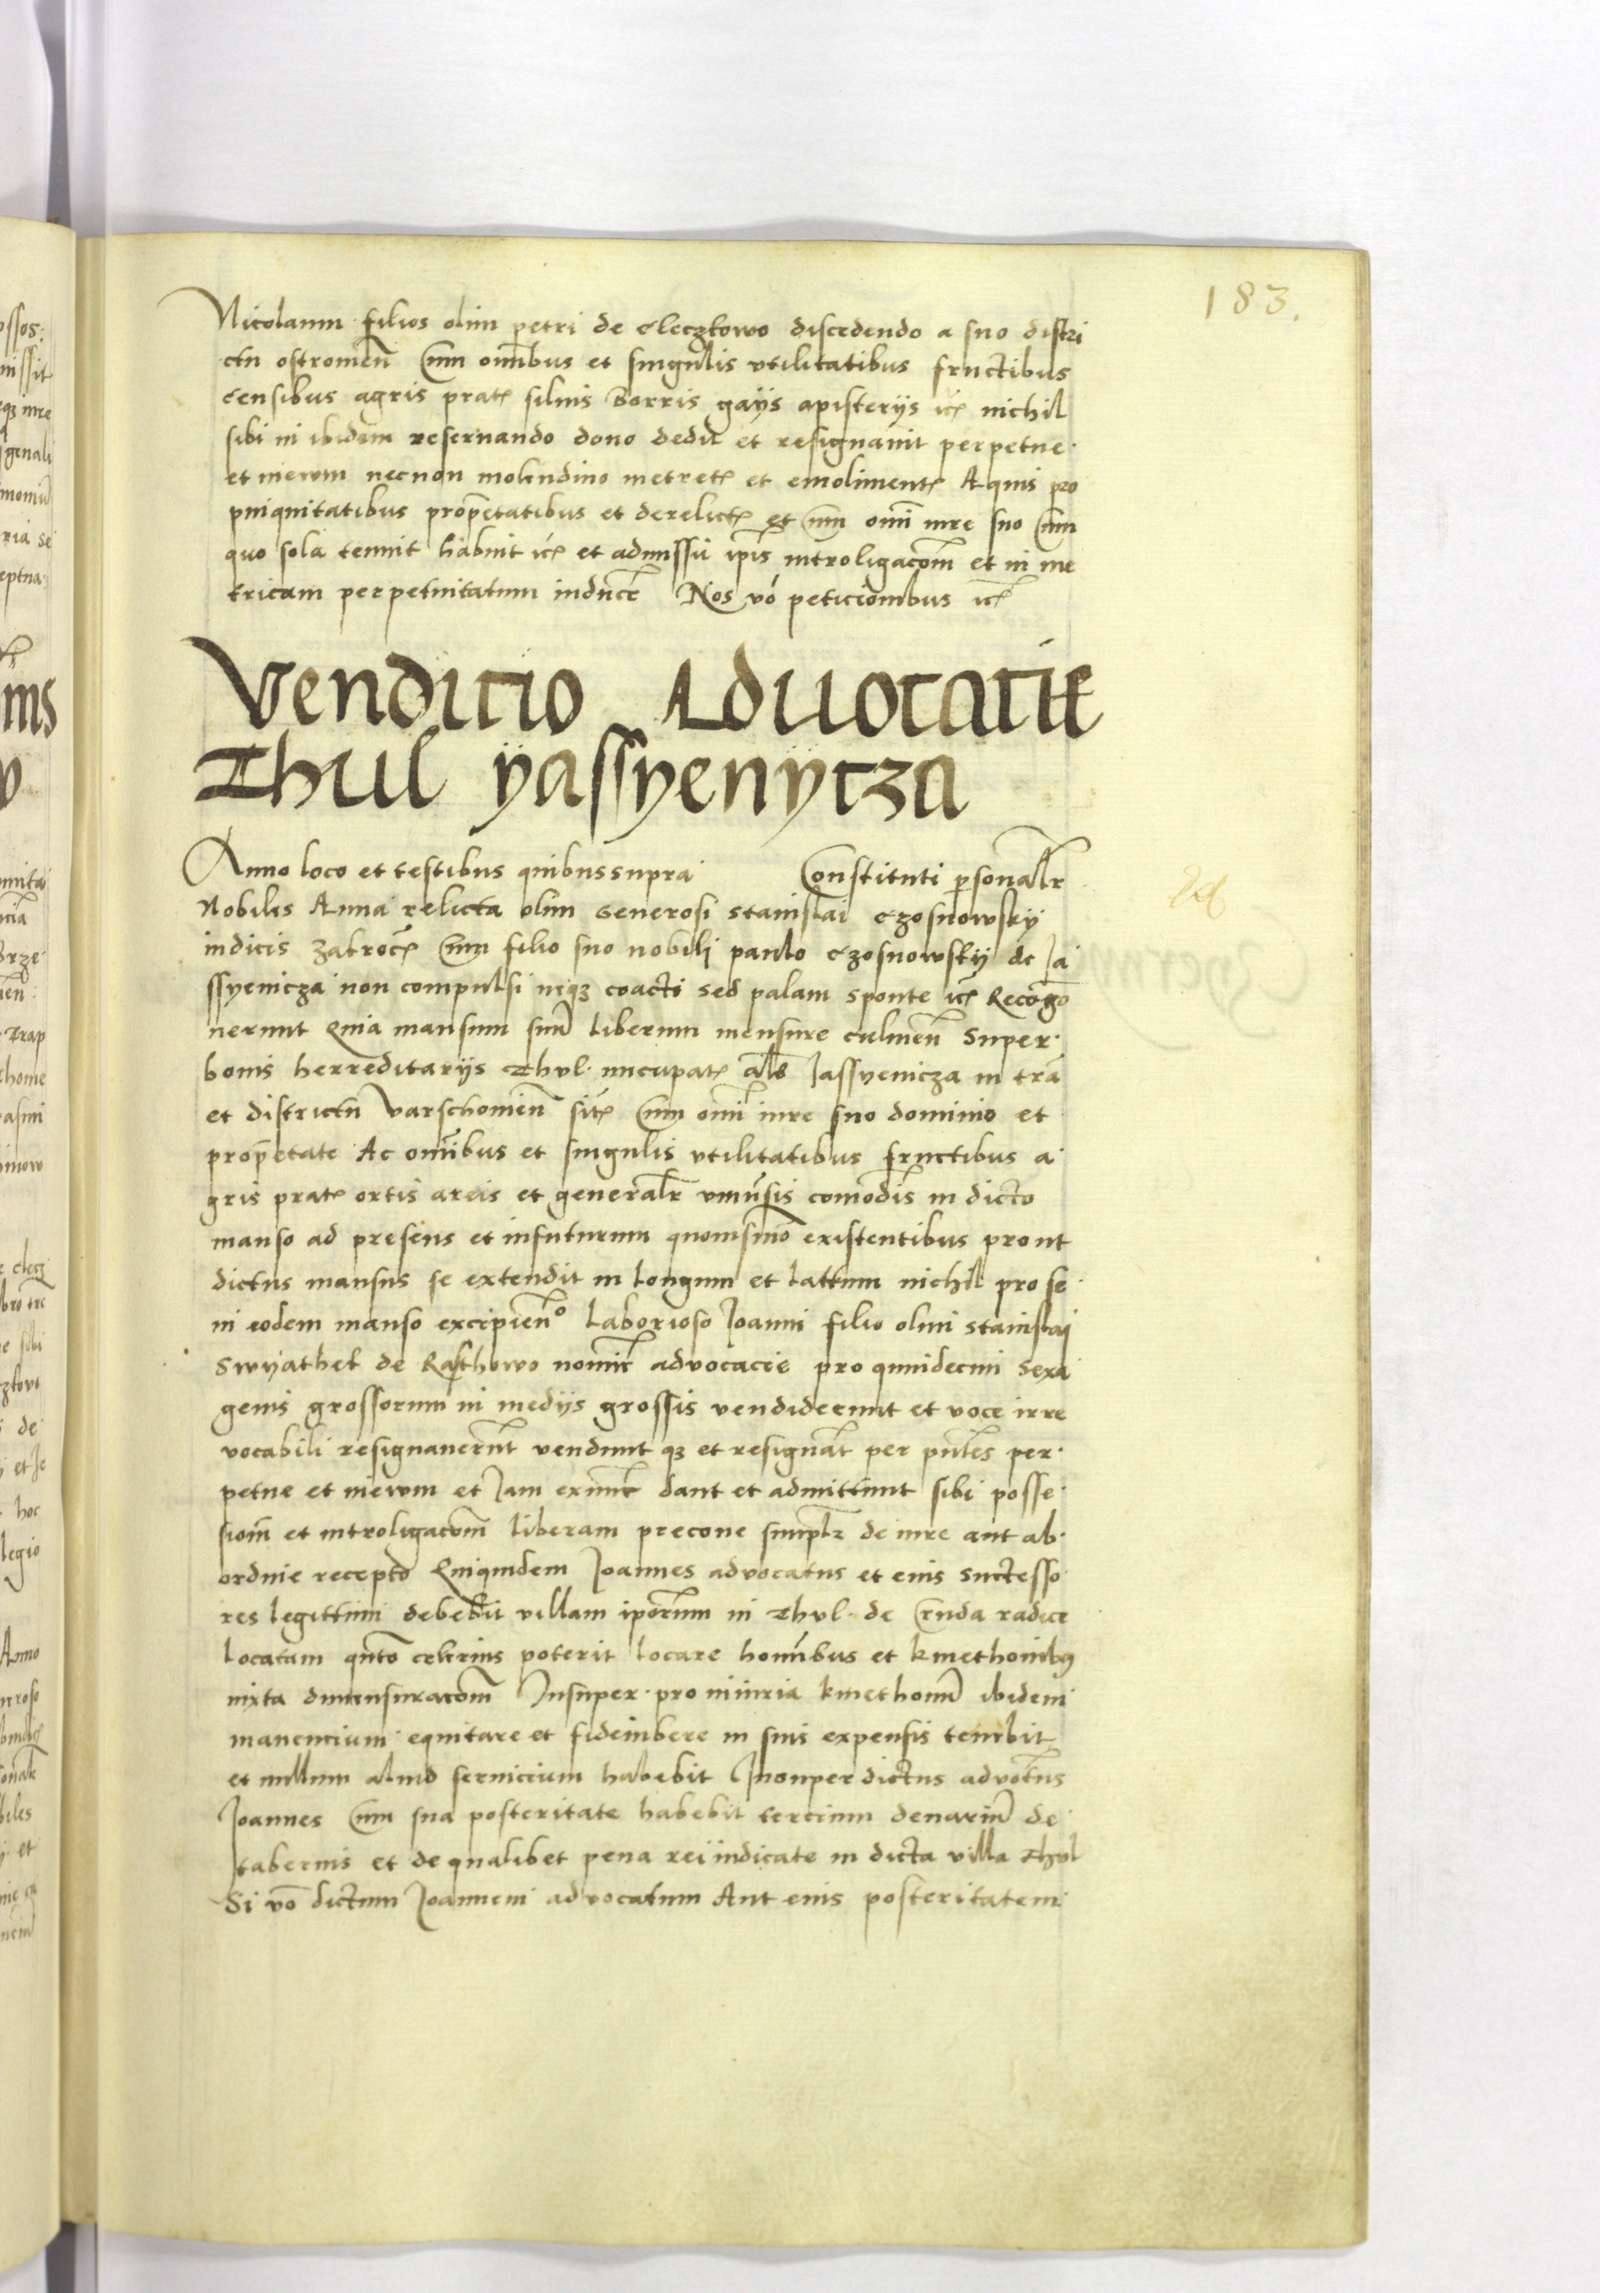 183.
Nicolaum filios olim petri de clecztowo discedendo a suo distri
ctu ostromen̄ Cum om̄ibus et singulis vtilitatibus fructibus
censibus agris prat. siluis Borris gayis apisteriis ic. nichil
sibi in ibidem reseruando dono dedit et resignauit perpetue
et in ewm necnon molendino metret. et emoliment. Aquis pro
pinquitatibus prop̄etatibus et derelict. et cum om̄i iure suo Cum
quo sola tenuit habuit ic. et admissu ip̄is introligacōm et in me
tricam perpetuitatum inducē Nos vō peticionibus ic.
Venditio Aduocatie
Thul yassyenytza
Anno loco et testibus quibussupra Constituti p̄sonalr̄
Nobiles Anna relicta olim Generosi Stanislai Czosnowsky
iudicis Zakroc. Cum filio suo nobili paulo Czosnowsky de Ja
ssyenicza non compulsi neqz coacti sed palam sponte ic. Recogō
nerunt Quia mansum suū liberum mensure culmen̄ super
bonis herreditariis Thul nucupat. als̄ Jassyenicza in tr̄a
et districtu varschouien̄ sit. Cum om̄i iure suo dominio et
prop̄etate Ac om̄ibus et singulis vtilitatibus fructibus a
gris prat. ortis areis et generalr̄ vniūsis comodis in dicto
manso ad presens et infuturum quouismō existentibus prout
dictus mansus se extendit in longum et lattum nichil pro se
in eodem manso excipien̄o Laborioso Joanni filio olim Stanislai
Swyathek de Rakhowo nomīe advocacie pro quindecim sexa
genis grossorum in mediis grossis vendiderunt et voce irre
vocabili resignauerūt vendunt qz et resignāt per pn̄tes per
petue et in ewm et Jam ex nūc dant et admittunt sibi posse
siom̄ et introligacōm liberam precone simplr̄ de iure aut ab
ordine recepto Quiquidem Joannes advocatus et eius suctesso
res legittimi debebūt villam ip̄orum in Thul de Cruda radice
locatam qn̄to celerius poterit locare hom̄ibus et kmethonibus
iuxta dimensuracōm Insuper pro iniuria kmethonū ibidem
manencium equitare et fideiubere in suis expensis tenebit
et nullum aliud seruicium habebit Insuper dictus advocatus
Joannes Cum sua posteritate habebit tercium denariū de
tabernis et de qualibet pena rei iudicate in dicta villa Thul
Si vō dictum Joannem advocatum Aut eius posteritatem